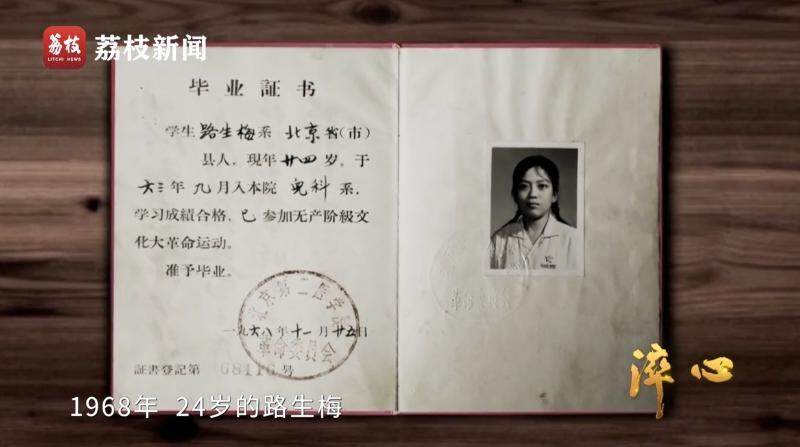 荔枝
LITCHI NEWS
荔枝新闻
毕业証书
学生路生梅系北京省(市)
县人,现年廿四岁。于
六三年九月入本院儿科系,
学习成績合格、已参加无产阶級文
化大革命运动。
准予毕业。
北京第二医学院
革命委員会
一九六八年十一月廿五日
証書登記第68116号
淬心
1968年 24岁的路生梅